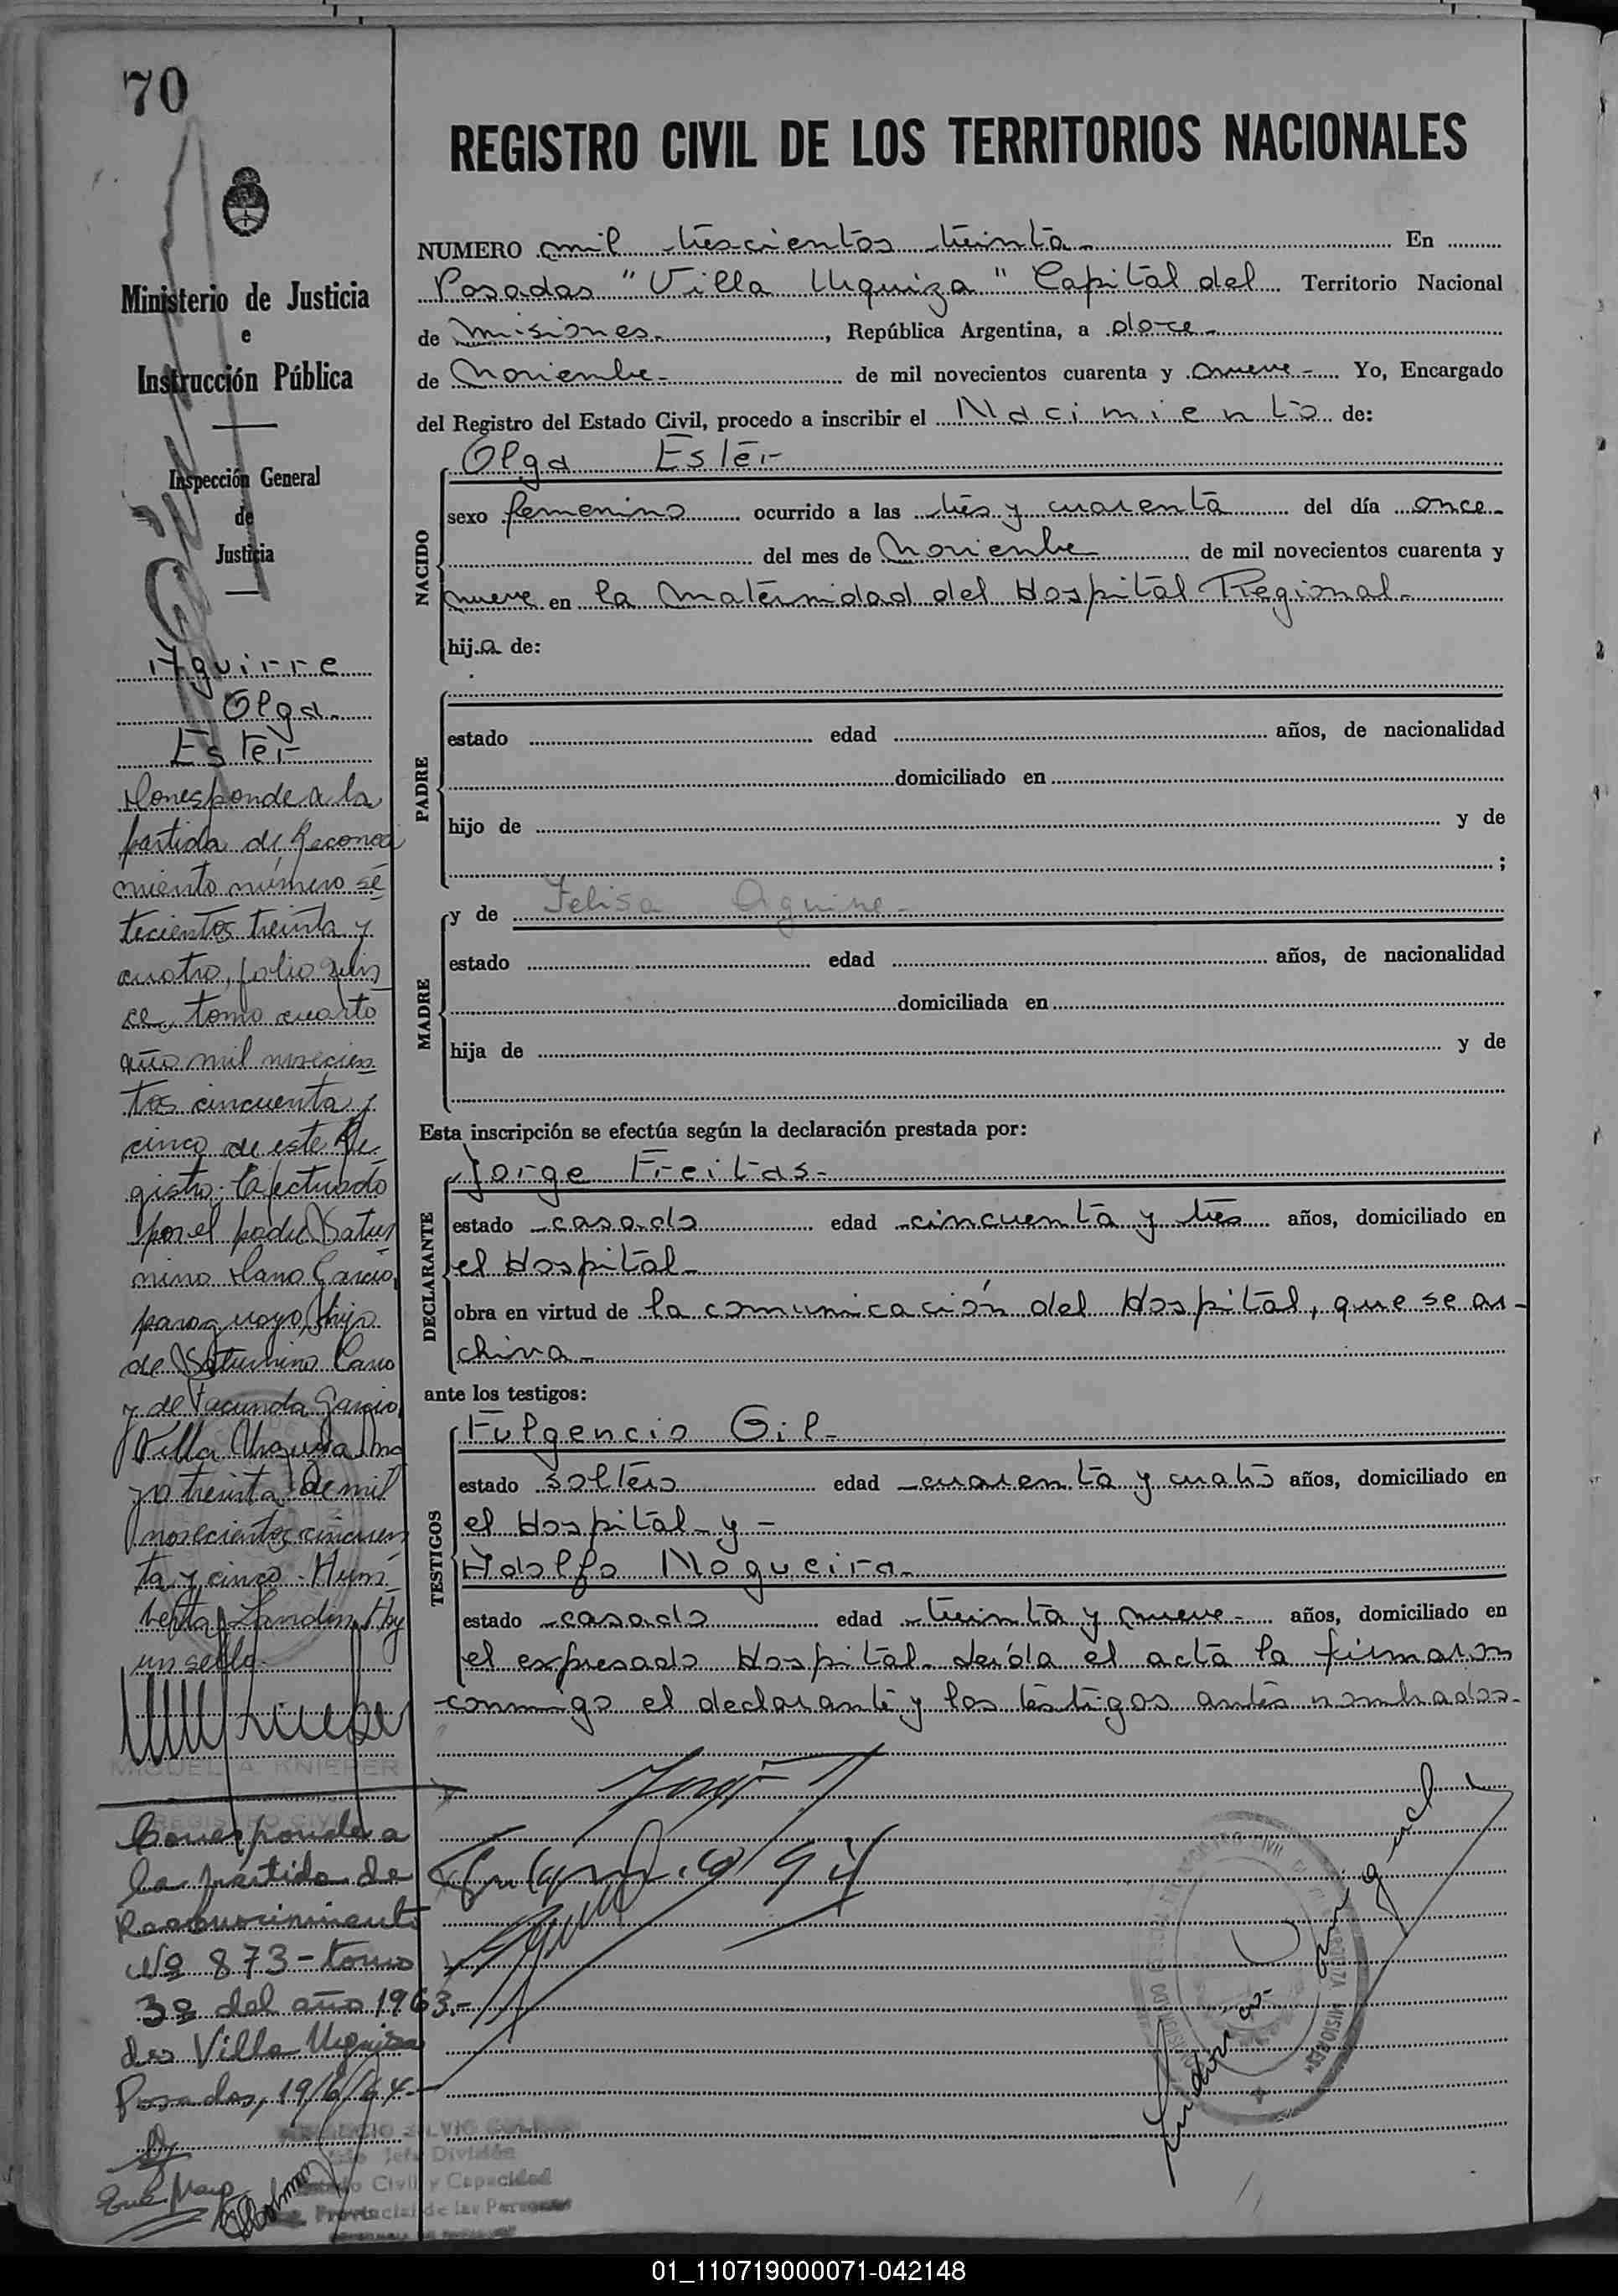 70
REGISTRO CIVIL DE LOS TERRITORIOS NACIONALES
Ministerio de Justicia
e
Instrucción Pública
Inspección General
de
Justicia
Aguirre
Olga
Ester
Corresponde a la
partida de Reconoci
miento número se
tecientos treinta y
cuatro, folio quin
ce, tomo cuarto
año mil novecien
tos cincuenta y
cinco de este Re
gistro. Efectuado
por el padre Satur
nino Cano Garcia,
paraguayo, hijo
de Saturnino Cano
y de Facunda Garcia,
Villa Urquiza, ma
yo treinta de mil
novecientos cincuen
ta y cinco - Hum
berto Hay
un sello.
MIGUEL A. KNIEPER
REGISTRO CIVIL
Corresponde a
la partida de
Reconocimiento
Nº 873 - tomo
3º del año 1963.-
des Villa Urquiza
Posadas, 19/6/64-
NUMERO mil trescientos treinta - En
Posadas "Villa Urquiza" Capital del Territorio Nacional
de Misiones - , República Argentina, a doce -
de Noviembre - de mil novecientos cuarenta y nueve - Yo, Encargado
del Registro del Estado Civil, procedo a inscribir el Nacimiento de:
NACIDO
Olga Ester
sexo femenino ocurrido a las tres y cuarenta del día once -
del mes de Noviembre de mil novecientos cuarenta y
nueve en la Maternidad del Hospital Regional -
hija de:
PADRE
estado edad años, de nacionalidad
domiciliado en
hijo de y de
;
MADRE
y de Felisa Aguirre -
estado edad años, de nacionalidad
domiciliada en
hija de y de
Esta inscripción se efectúa según la declaración prestada por:
DECLARANTE
Jorge Freitas -
estado casado edad cincuenta y tres años, domiciliado en
el Hospital -
obra en virtud de la comunicación del Hospital, que se ar-
chiva -
ante los testigos:
TESTIGOS
Fulgencio Gil -
estado soltero edad cuarenta y cuatro años, domiciliado en
el Hospital - y -
Adolfo Nogueira -
estado casado edad treinta y nueve - años, domiciliado en
el expresado Hospital - Leída el acta la firmaron
conmigo el declarante y los testigos antes nombrados -
Jefe División
Civil y Capacidad
Provincial de las Personas
01_110719000071-042148